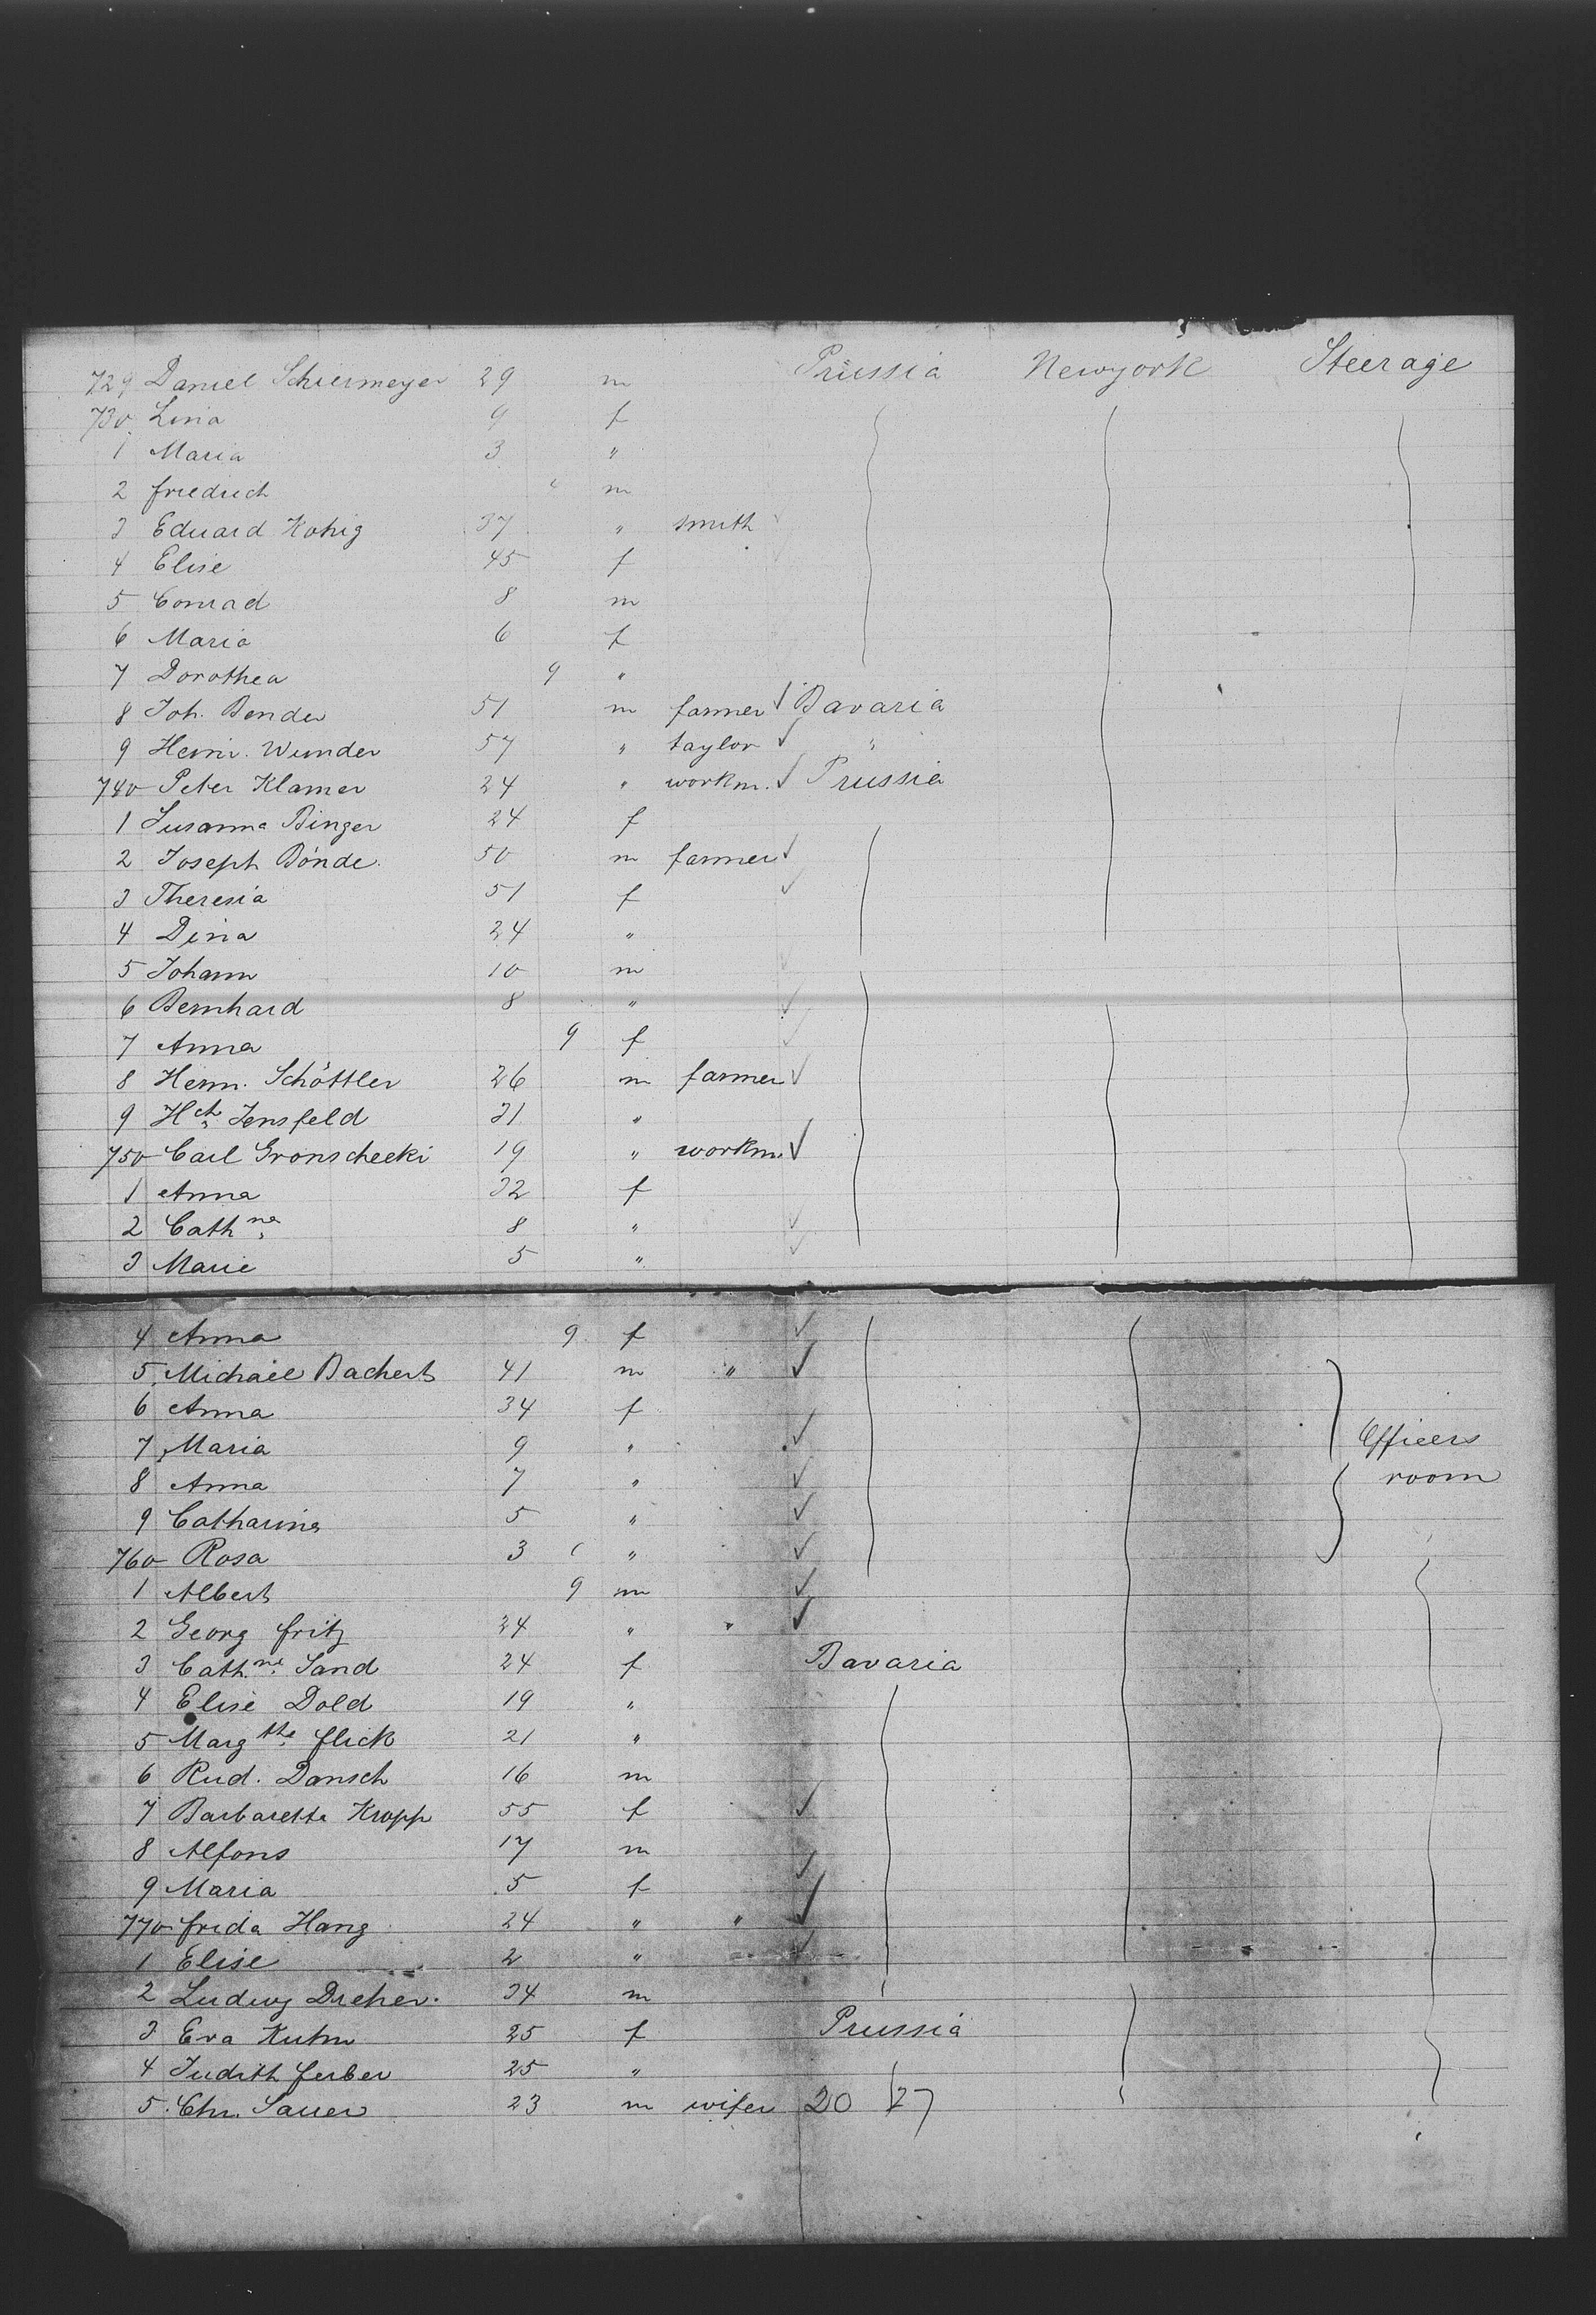 729 Daniel Schiermeyer 29 m Prussia Newyork Steerage
730 Lina 9 f
1 Maria 3 "
2 Friedrich m
3 Eduard Kohig 37 " smith
4 Elise 45 f
5 Conrad 8 m
6 Maria 6 f
7 Dorothea 9 "
8 Joh. Bender 51 m farmer Bavaria
9 Heinr. Wunder 57 " taylor "
740 Peter Klamer 24 " workm. Prussia
1 Susanna Binger 24 f
2 Joseph Bönde 50 m farmer
3 Theresia 51 f
4 Dina 24 "
5 Johann 10 m
6 Bernhard 8 "
7 Anna 9 f
8 Herm. Schöttler 26 m farmer
9 Hch. Jensfeld 31 "
750 Carl Gronscheeki 19 " workm.
1 Anna 32 f
2 Cathne 8 "
3 Marie 5 "
4 Anna 9 f
5 Michael Bachert 41 m "
6 Anna 34 f
7 Maria 9 " Officers
8 Anna 7 " room
9 Catharina 5 "
760 Rosa 3 "
1 Albert 9 m
2 Georg Fritz 24 " "
3 Cathne. Sand 24 f Bavaria
4 Elise Dold 19 "
5 Margthe. Flick 21 "
6 Rud. Dansch 16 m
7 Barbaretta Kropp 55 f
8 Alfons 17 m
9 Maria 5 f
770 Frida Hang 24 " "
1 Elise 2 "
2 Ludwig Dreher 34 m
3 Eva Kuhn 25 f Prussia
4 Judith Ferber 25 "
5 Chr. Sauer 23 m wifer 20 27